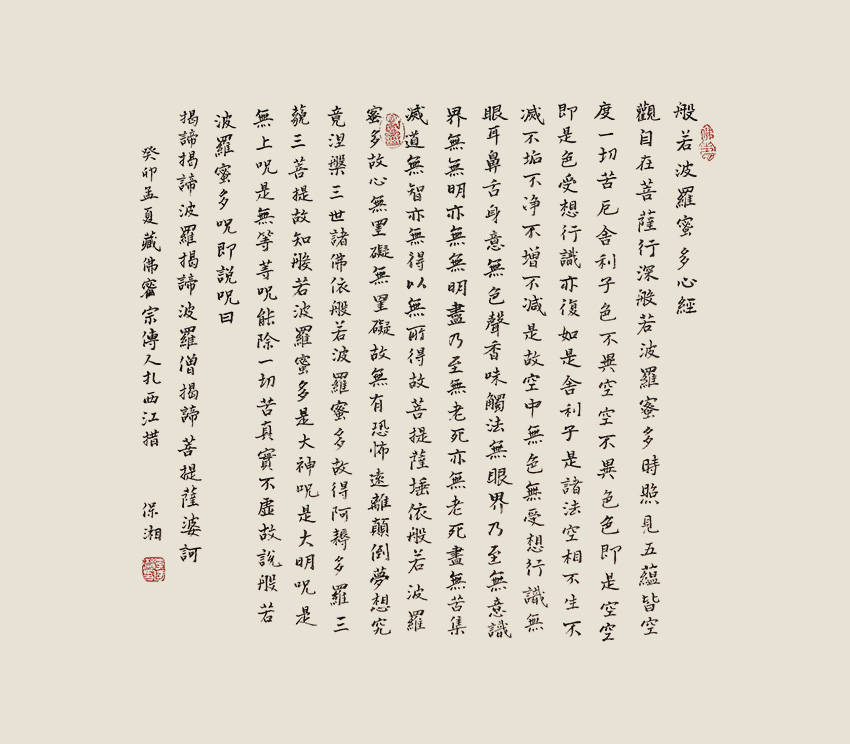 般若波羅蜜多心經
觀自在菩薩行深般若波羅蜜多時照見五蘊皆空
度一切苦厄舍利子色不異空空不異色色即是空空
即是色受想行識亦復如是舍利子是諸法空相不生不
滅不垢不净不增不减是故空中無色無受想行識無
眼耳鼻舌身意無色聲香味觸法無眼界乃至無意識
界無無明亦無無明盡乃至無老死亦無老死盡無苦集
滅道無智亦無得以無所得故菩提薩埵依般若波羅
蜜多故心無罣礙無罣礙故無有恐怖遠離顛倒夢想究
竟涅槃三世諸佛依般若波羅蜜多故得阿耨多羅三
藐三菩提故知般若波羅蜜多是大神呪是大明呪是
無上呪是無等等呪能除一切苦真實不虛故說般若
波羅蜜多呪即說呪曰
揭諦揭諦波羅揭諦波羅僧揭諦菩提薩婆訶
癸卯孟夏藏佛密宗傳人扎西江措 保湘